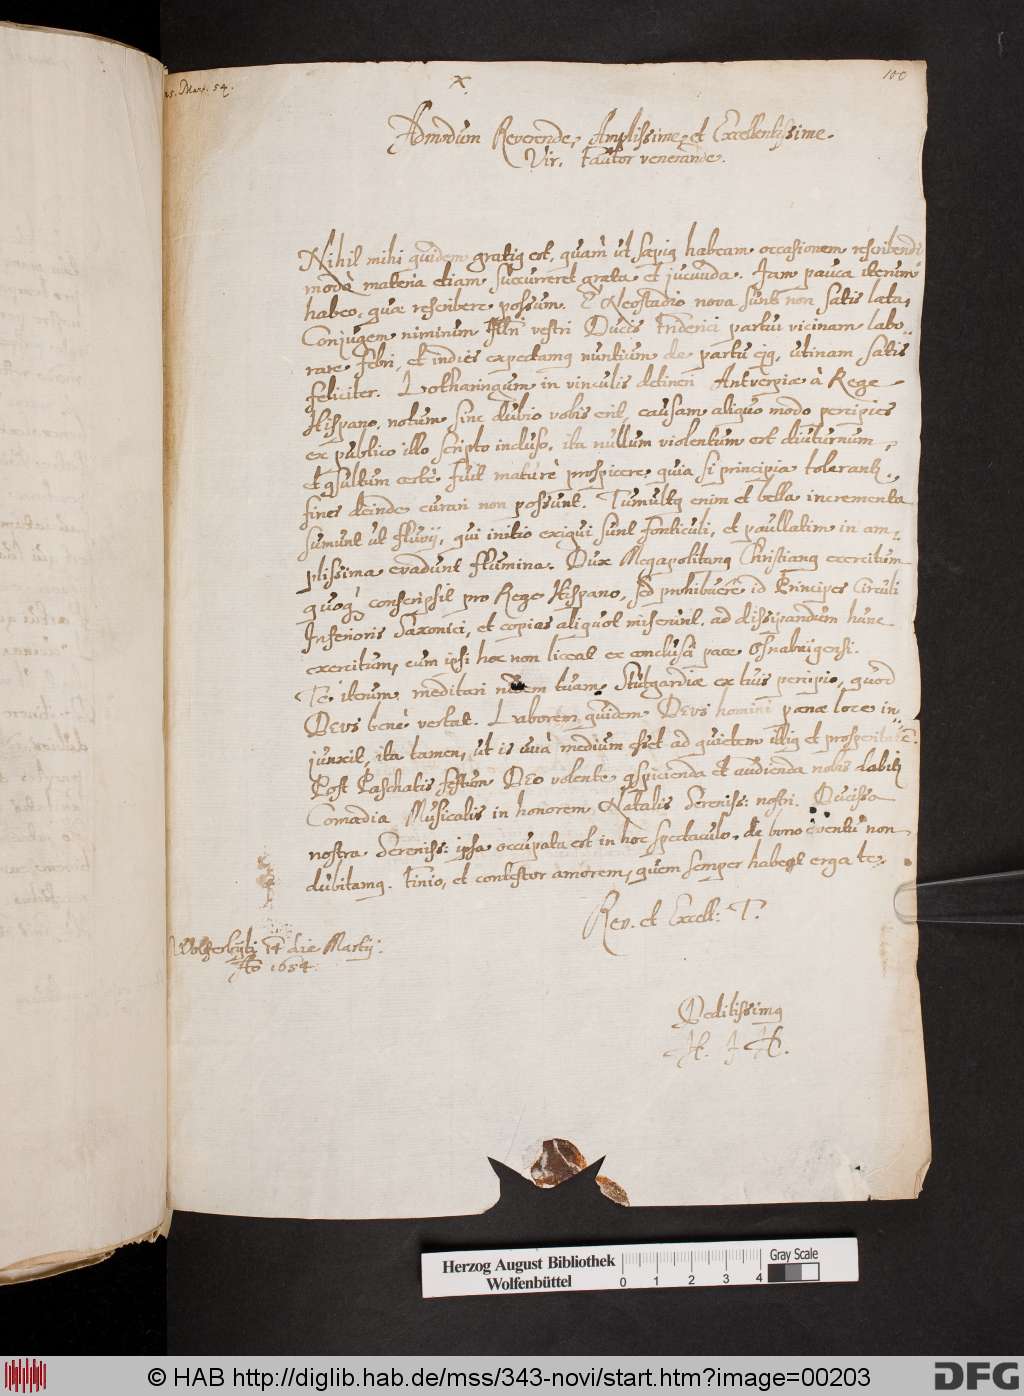 25. Mart. 54.
X
100
Admodum Reverende, Amplissime, et Excellentissime
Vir, Fautor venerande.
Nihil mihi quidem gratiq est, quàm ut sæpiq habeam occasionem rescribendi
modò materia etiam succurreret grata et jucunda. Jam pauca iterum
habeo, quæ rescribere possum. E Neostadio nova sunt non satis læta,
Conjugem nimirum Illmi vestri Ducis Friderici partui vicinam labo-
rare febri, et indies expectamq nuntium de partu ejq, utinam satis
feliciter. Lotharingum in vinculis detineri Antverpiæ à Rege
Hispano, notum sine dubio vobis erit, causam aliquo modo percipies
ex publico illo scripto incluso, ita nullum violentum est diuturnum,
et qsultum certè fuit maturè prospicere, quia si principia tolerantr,
fines deinde curari non possunt. Tumultq enim et bella incrementa
sumunt ut fluvij, qui initio exigui sunt fonticuli, et paullatim in am-
plissima evadunt flumina. Dux Megapolitanq Christianq exercitum
quoq conscripsit pro Rege Hispano, sed prohibuere id Principes Circuli
Inferioris Saxonici, et copias aliquot miserunt ad dissipandum hunc
exercitum, cum ipsi hoc non liceat ex conclusa pace Osnabrugensi.
Te iterum meditari iter tuam Stutgardiæ ex tuis percipio, quod
DEUS benè vertat. Laborem quidem DEUS homini pænæ loco in-
junxit, ita tamen, ut is quà medium esset ad quietem illiq et prosperitatē.
Post Paschatis festum DEO volente qspicienda et audienda nobis dabitr
Comœdia Musicalis in honorem Natalis Sereniss: nostri. Ducissa
nostra Sereniss: ipsa occupata est in hoc spectaculo, de bono eventu non
dubitamq. Finio, et contestor amorem, quem semper habeo erga te.
Rev. et Excell: T.
Wolferbyti 14 die Martij.
Ao 1654.
Deditissimq
H. J H.
Herzog August Bibliothek
Wolfenbüttel
0 1 2 3 4
Gray Scale
© HAB http://diglib.hab.de/mss/343-novi/start.htm?image=00203
DFG